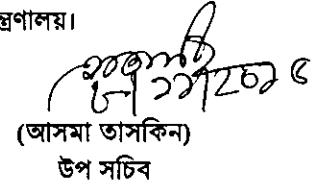 ন্ত্রণালয়।
(আসমা তাসকিন)
উপ সচিব